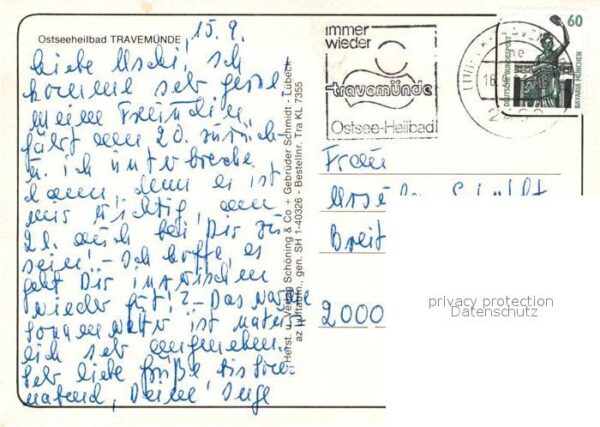 Ostseeheilbad TRAVEMÜNDE
15.9.
liebe Uschi, ich
komme sehr gern
meine Freundin
fährt am 20. zurück
u. ich unterbreche
dann, denn es ist
mir wichtig, am
21. auch bei Dir zu
sein! - Ich hoffe, es
geht Dir inzwischen
wieder gut!? - Das
Sonnenwetter ist natür-
lich sehr angenehm.
Sehr liebe Grüße bis
Deine Inge
Herst. u. Verlag Schöning & Co + Gebrüder Schmidt - Lübeck
az Luftaufn., gen. SH 1-40326 - Bestellnr. Tra KL 7355
immer
wieder
travemünde
Ostsee-Heilbad
16.
60
DEUTSCHE BUNDESPOST
BAVARIA MÜNCHEN
Frau
Breit
2000
privacy protection
Datenschutz